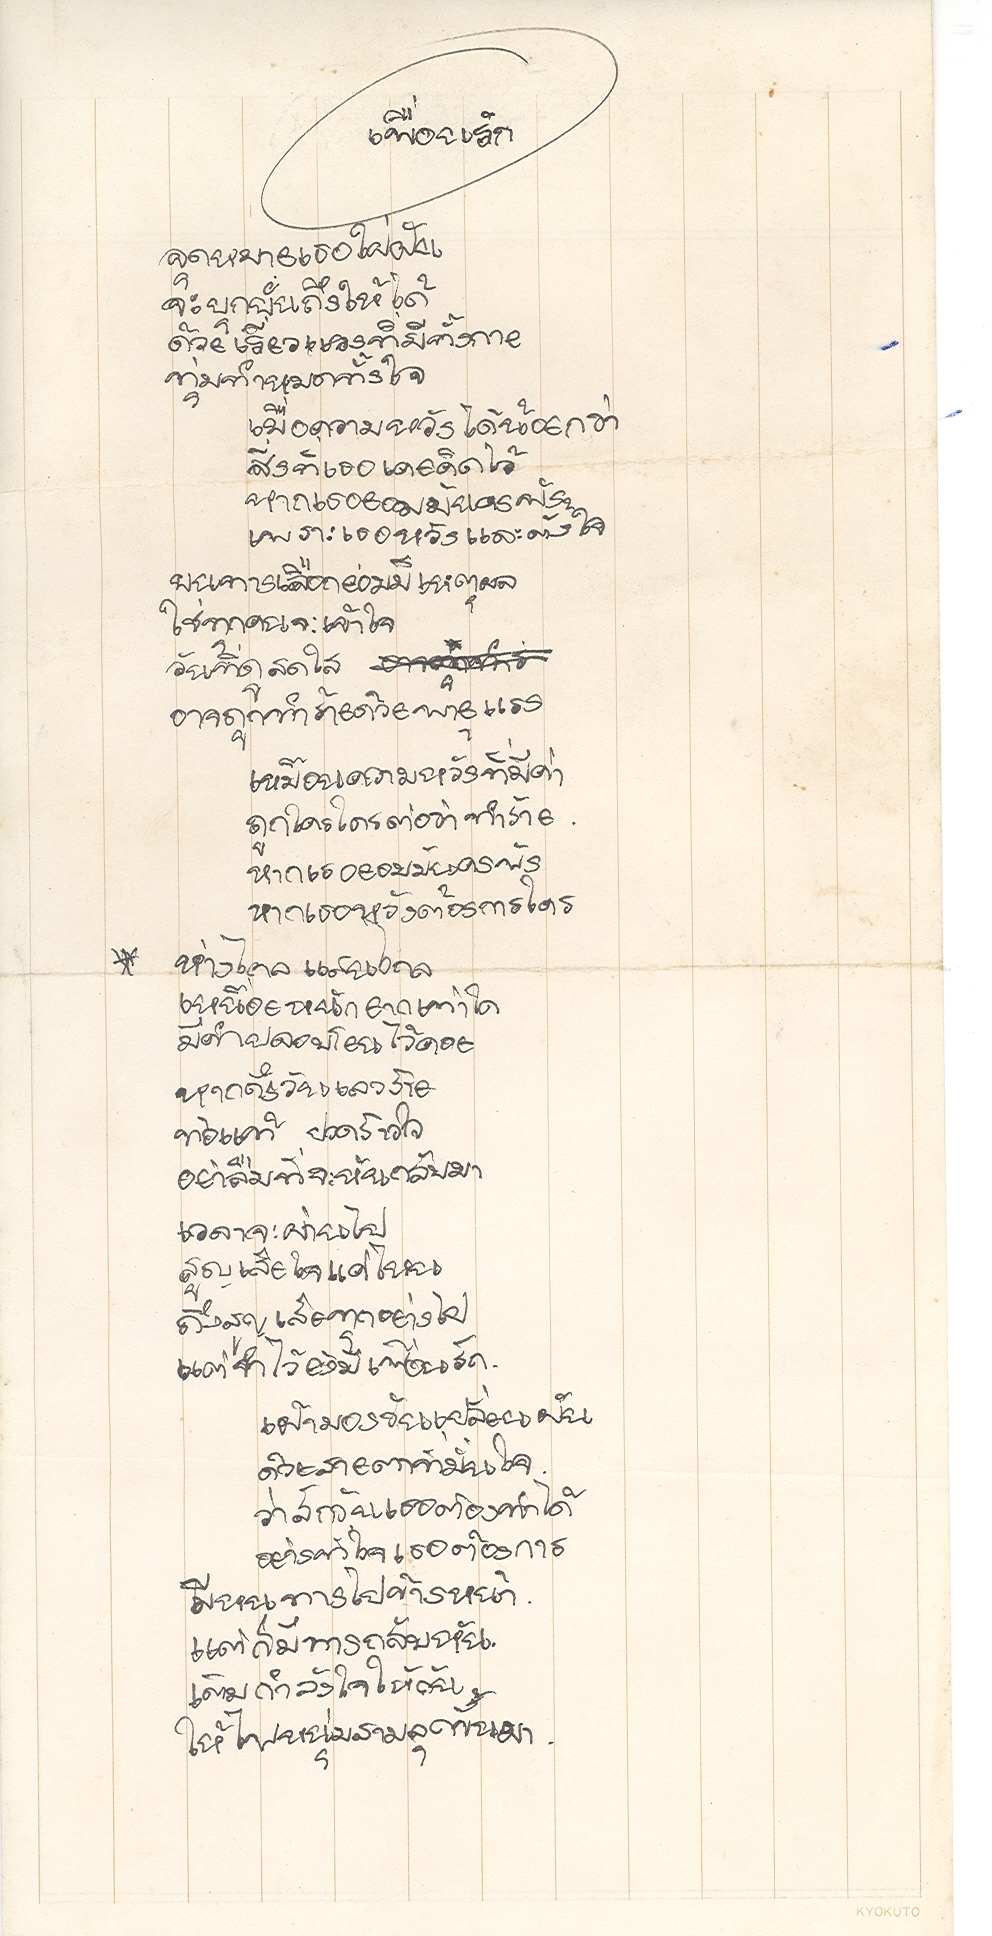 เพื่อนรัก
จุดหมายเธอใฝ่ฝัน
จะบุกบั่นถึงให้ได้
ด้วยเรี่ยวแรงที่มีทั้งกาย
ทุ่มทำหมดทั้งใจ
เมื่อความหวังได้น้อยกว่า
สิ่งที่เธอเคยคิดไว้
หากเธอยอมมันคงพัง
เพราะเธอหวังและตั้งใจ
บนทางเลือกย่อมมีเหตุผล
ใช่ทุกคนจะเข้าใจ
วันที่ดูสดใส
อาจถูกทำร้ายด้วยพายุแรง
เหมือนความหวังที่มีค่า
ถูกใครใครต่อว่าทำร้าย.
หากเธอยอมมันคงพัง
หากเธอหวังต้องการใคร
* ห่างไกล แสนไกล
เหนื่อยหนักยากเท่าใด
มีคำปลอบโยนไว้คอย
หากถึงวันเลวร้าย
ท้อแท้ ปวดร้าวใจ
อย่าลืมที่จะหันกลับมา
เวลาจะผ่านไป
สูญเสียใจแค่ไหน
ถึงสูญเสียทุกอย่างไป
แต่จำไว้ยังมีเพื่อนรัก.
เฝ้ามองวันเปลี่ยนผัน
ด้วยสายตาที่มั่นใจ.
ว่าสักวันเธอต้องทำได้
อย่างที่ใจเธอต้องการ
มีหนทางไปข้างหน้า.
แต่ก็มีทางกลับหัน.
เติมกำลังใจให้กัน
ให้ไฟหนุ่มสาวลุกขึ้นมา.
KYOKUTO